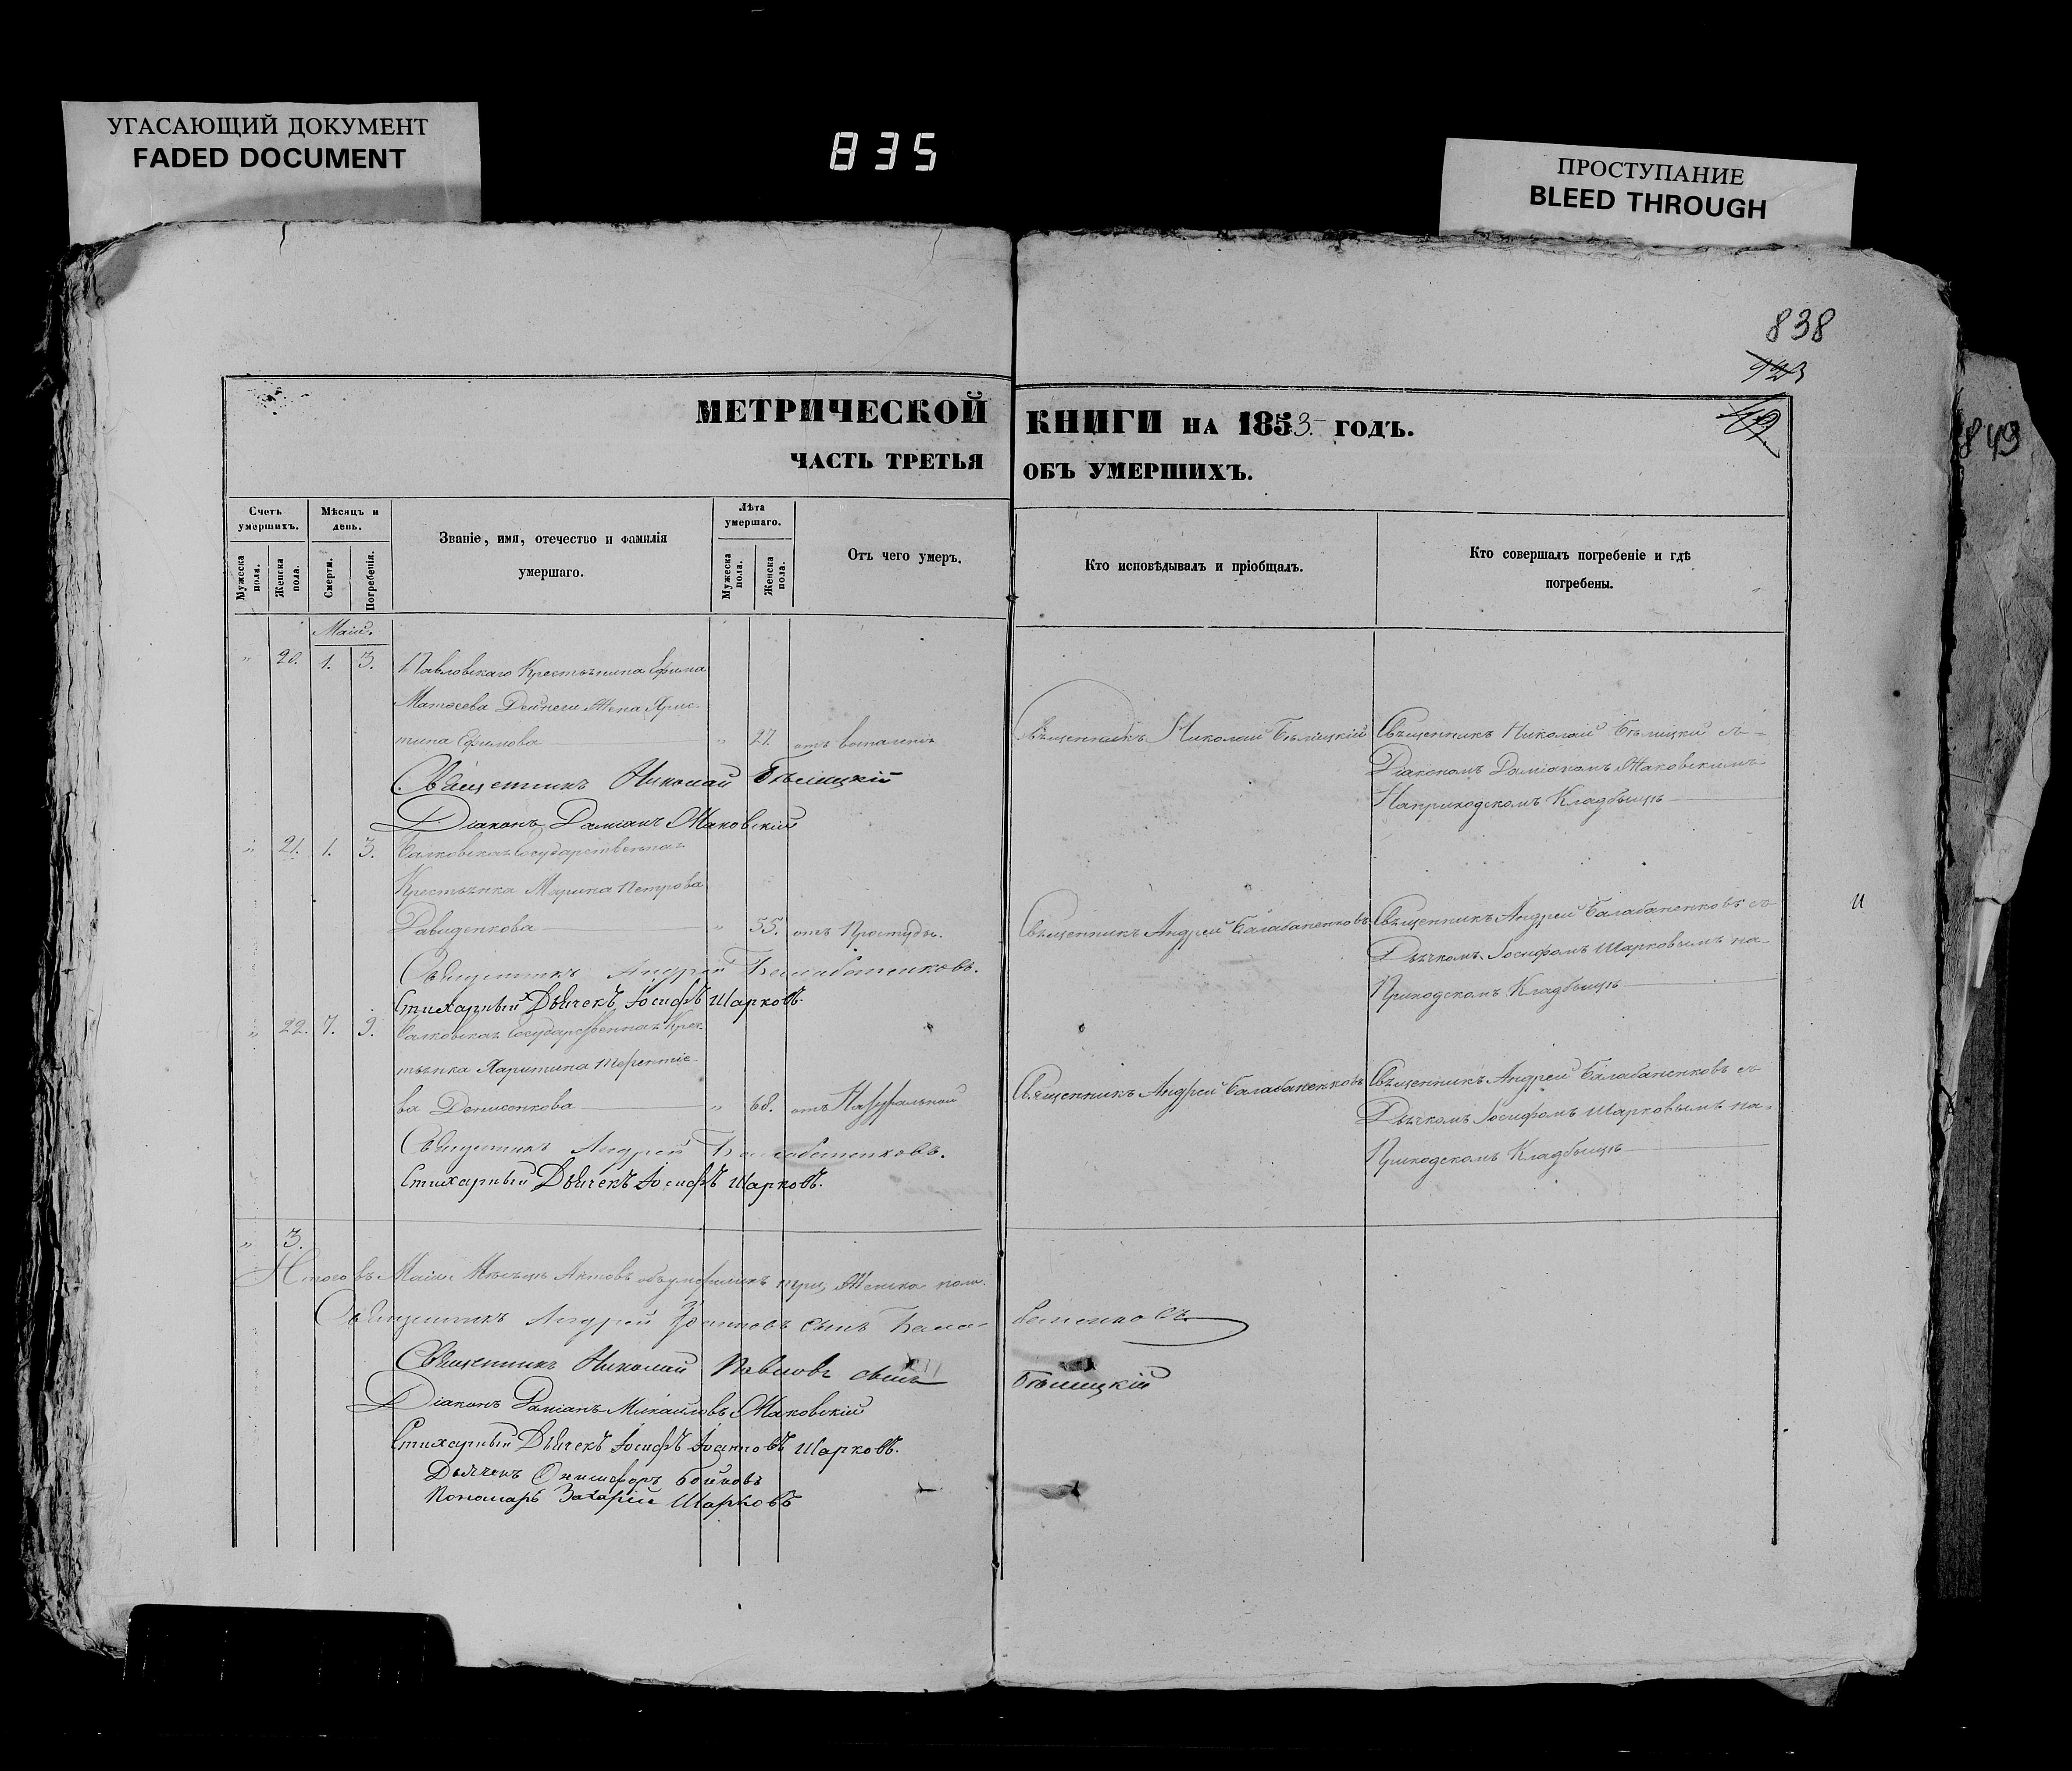 УГАСАЮЩИЙ ДОКУМЕНТ
FADED DOCUMENT
835
ПРОСТУПАНИЕ
BLEED THROUGH
838
843
МЕТРИЧЕСКОЙ КНИГИ НА 1853 ГОДЪ.
ЧАСТЬ ТРЕТЬЯ ОБЪ УМЕРШИХЪ.
Счетъ умершихъ.
Мужеска пола.
Женска пола.
Мѣсяцъ и день.
Смерти.
Погребенія.
Званіе, имя, отечество и фамилія
умершаго.
Лѣта умершаго.
Мужеска пола.
Женска пола.
Отъ чего умеръ.
Кто исповѣдывалъ и пріобщалъ.
Кто совершалъ погребеніе и гдѣ
погребены.
Маія.
" 20. 1. 3. Павловскаго Крестьянина Ефима
Матвеева Дейнеги Жена Хрис-
тина Ефимова " 27. отъ Священникъ Николай Бѣлицкій Священникъ Николай Бѣлицкій съ
Діакономъ Даміаномъ Жаковскимъ
Наприходскомъ Кладбищѣ
Священникъ Николай Бѣлицкій
Діаконъ Даміанъ Жаковскій
" 21. 1. 3. Государственная
Крестьянка Марина Петрова
Давиденкова " 55. отъ Простуды. Священникъ Андрей Балабаненковъ Священникъ Андрей Балабаненковъ съ
Дьячкомъ Іосифомъ Шарковымъ на
Приходскомъ Кладбищѣ
Священникъ Андрей Балабаненковъ.
Стихарный Дьячекъ Іосифъ Шарковъ.
" 22. 7. 9. Государственная Крес-
тьянка Харитина Терентіе-
ва Денисенкова " 68. отъ Натуральной Священникъ Андрей Балабаненковъ Священникъ Андрей Балабаненковъ съ
Дьячкомъ Іосифомъ Шарковымъ на
Приходскомъ Кладбищѣ
Священникъ Андрей Балабаненковъ.
Стихарный Дьячекъ Іосифъ Шарковъ.
" 3.
Итого въ Маіи Мѣсяцѣ Актовъ объумершихъ три, Женска пола.
Священникъ Андрей Іоанновъ сынъ Балабаненковъ
Священникъ Николай Павловъ сынъ Бѣлицкій
Діаконъ Даміанъ Михаиловъ Жаковскій
Стихарный Дьячекъ Іосифъ Іоанновъ Шарковъ.
Дьячекъ Онисифоръ Бойковъ
Пономарь Захарій Шарковъ